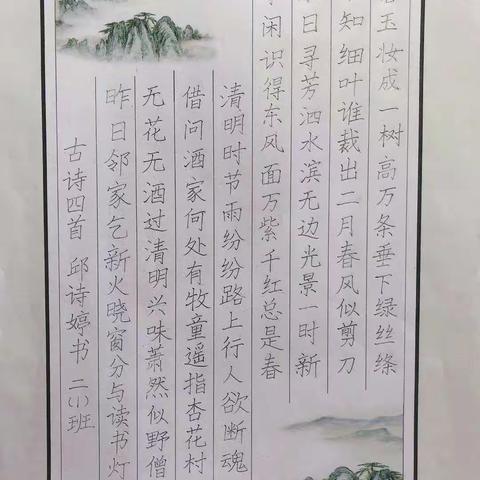 玉妆成一树高万条垂下绿丝绦
知细叶谁裁出二月春风似剪刀
日寻芳泗水滨无边光景一时新
闲识得东风面万紫千红总是春
清明时节雨纷纷路上行人欲断魂
借问酒家何处有牧童遥指杏花村
无花无酒过清明兴味萧然似野僧
昨日邻家乞新火晓窗分与读书灯
古诗四首 邱诗婷书 二(1)班